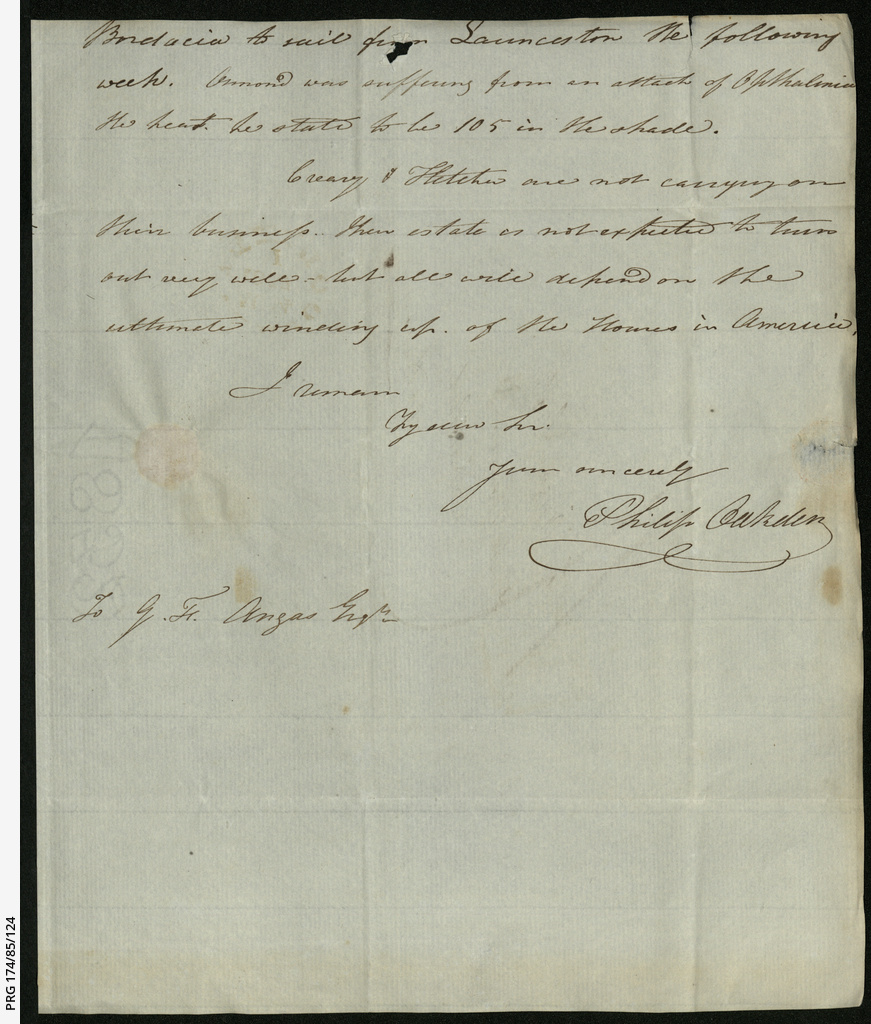 Bordacia to sail from Launceston the following
week. Osmond was suffering from an attack of Opthalmia
the heat he states to be 105 in the shade.
Creary & Fletcher are not carrying on
their business. Their estate is not expected to turn
out very well - but all will depend on the
ultimate winding up. of the Houses in America.
I remain
My dear Sir.
Yours sincerely
Philip Oakden
To G. F. Angas Esqre
PRG 174/85/124